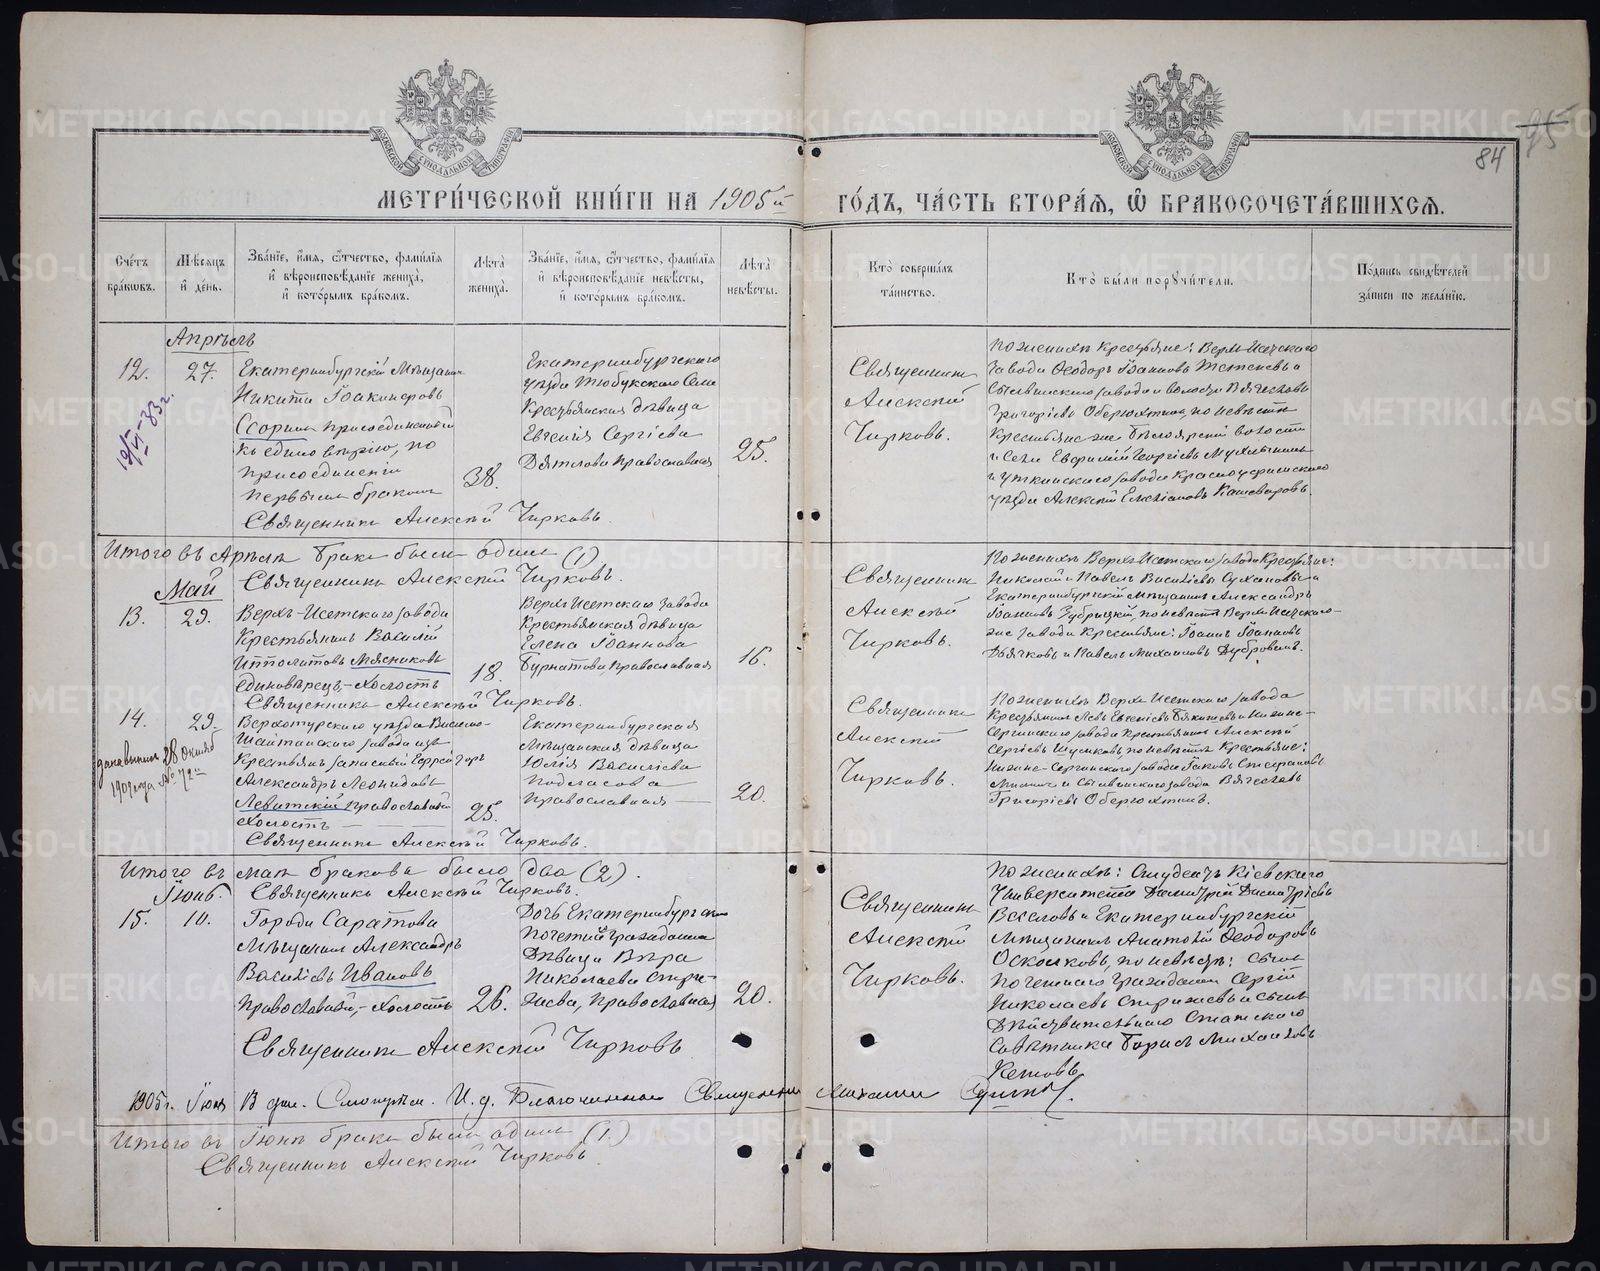 84
95
МЕТРИ́ЧЕСКОЙ КНИ́ГИ НА 1905й ГО́ДЪ, ЧА́СТЬ ВТОРА́Я, Ѡ БРАКОСОЧЕТА́ВШИХСЯ.
Сче́тъ бра́ковъ.
Мѣ́сяцъ и де́нь.
Зва́нїе, и́мя, ѻ҆́тчество, фами́лїя
и вѣроисповѣ́данїе жениха̀,
и кото́рымъ бра́комъ.
Лѣта̀ жениха̀.
Зва́нїе, и́мя, ѻ҆́тчество, фами́лїя
и вѣроисповѣ́данїе невѣ́сты,
и кото́рымъ бра́комъ.
Лѣта̀ невѣ́сты.
Кто̀ соверша́лъ
та́инство.
Кто̀ бы́ли порꙋчи́тели.
По́дпись свидѣ́телей
за́писи по жела́нїю.
Апрѣль
12.
27.
Екатеринбургскій Мѣщанинъ
Никита Іоакимовъ
присоединенный
къ единовѣрію, по
присоединеніи
первымъ бракомъ
38.
Екатеринбургскаго
уѣзда Тюбукскаго Села
Крестьянская дѣвица
Евгенія Сергіева
Дятлова Православная
25.
Священникъ
Алексій
Чирковъ.
По женихѣ Крестьяне: Верхъ-Исетскаго
завода Ѳеодоръ Іоанновъ
Сылвинскаго завода и волости Вячеславъ
Григоріевъ Оберюхтинъ, по невѣстѣ
Крестьяне же Бѣлоярской волости
и села Евфимій Георгіевъ
и Уткинскаго завода Красноуфимскаго
уѣзда Алексій Кашеваровъ.
Священникъ Алексій Чирковъ.
Итого въ Апрѣлѣ бракъ былъ одинъ (1)
Священникъ Алексій Чирковъ.
Май
13.
29.
Верхъ-Исетскаго завода
Крестьянинъ Василій
Ипполитовъ Мясниковъ
единовѣрецъ, – холостъ
18.
Верхъ Исетскаго завода
Крестьянская дѣвица
Елена Іоаннова
Бурматова, Православная
16.
Священникъ
Алексій
Чирковъ.
По женихѣ Верхъ Исетскаго завода Крестьяне:
Николай и Павелъ Васильевы Сухановы и
Екатеринбургскій мѣщанинъ Александръ
Іоанновъ Зубрицкій, по невѣстѣ Верхъ-Исетскаго-
же завода Крестьяне: Іоаннъ Іоанновъ
Дьячковъ и Павелъ Михаиловъ Дубровинъ.
Священникъ Алексій Чирковъ.
14.
29.
28 Октяб
Верхотурскаго уѣзда Василье-
Шайтанскаго завода изъ
Крестьянъ запасный
Александръ Леонидовъ
Левитскій Православный
Холостъ
25.
Екатеринбургская
Мѣщанская дѣвица
Юлія Васильева
Подласова
Православная
20.
Священникъ
Алексій
Чирковъ.
По женихѣ Верхъ Исетскаго завода
Крестьянинъ Левъ Евгеніевъ и Нижне-
Сергинскаго завода Крестьянинъ Алексій
Сергіевъ по невѣстѣ Крестьяне:
Нижне-Сергинскаго завода Іаковъ Стефановъ
и Сылвинскаго завода Вячеславъ
Григоріевъ Оберюхтинъ.
Священникъ Алексій Чирковъ.
Итого въ маѣ браковъ было два (2).
Священникъ Алексій Чирковъ.
Іюнь.
15.
10.
Города Саратова
Мѣщанинъ Александръ
Васильевъ Ивановъ
Православный, – холостъ
26.
Дочь Екатеринбургскаго
почетнаго гражданина
Дѣвица Вѣра
Николаева Стри-
жева, Православная
20.
Священникъ
Алексій
Чирковъ.
По женихѣ: Студентъ Кіевскаго
Университета Дмитрій Дмитріевъ
Веселовъ и Екатеринбургскій
мѣщанинъ Анатолій Ѳеодоровъ
Осколковъ, по невѣстѣ: Сынъ
почетнаго гражданина Сергій
Николаевъ Стрижевъ и сынъ
Дѣйствительнаго Статскаго
Совѣтника Борисъ Михаиловъ
Священникъ Алексій Чирковъ
1905 г. Іюня И. д. Благочиннаго Священникъ Михаилъ
Итого въ Іюнѣ бракъ былъ одинъ (1)
Священникъ Алексій Чирковъ
METRIKI.GASO-URAL.RU